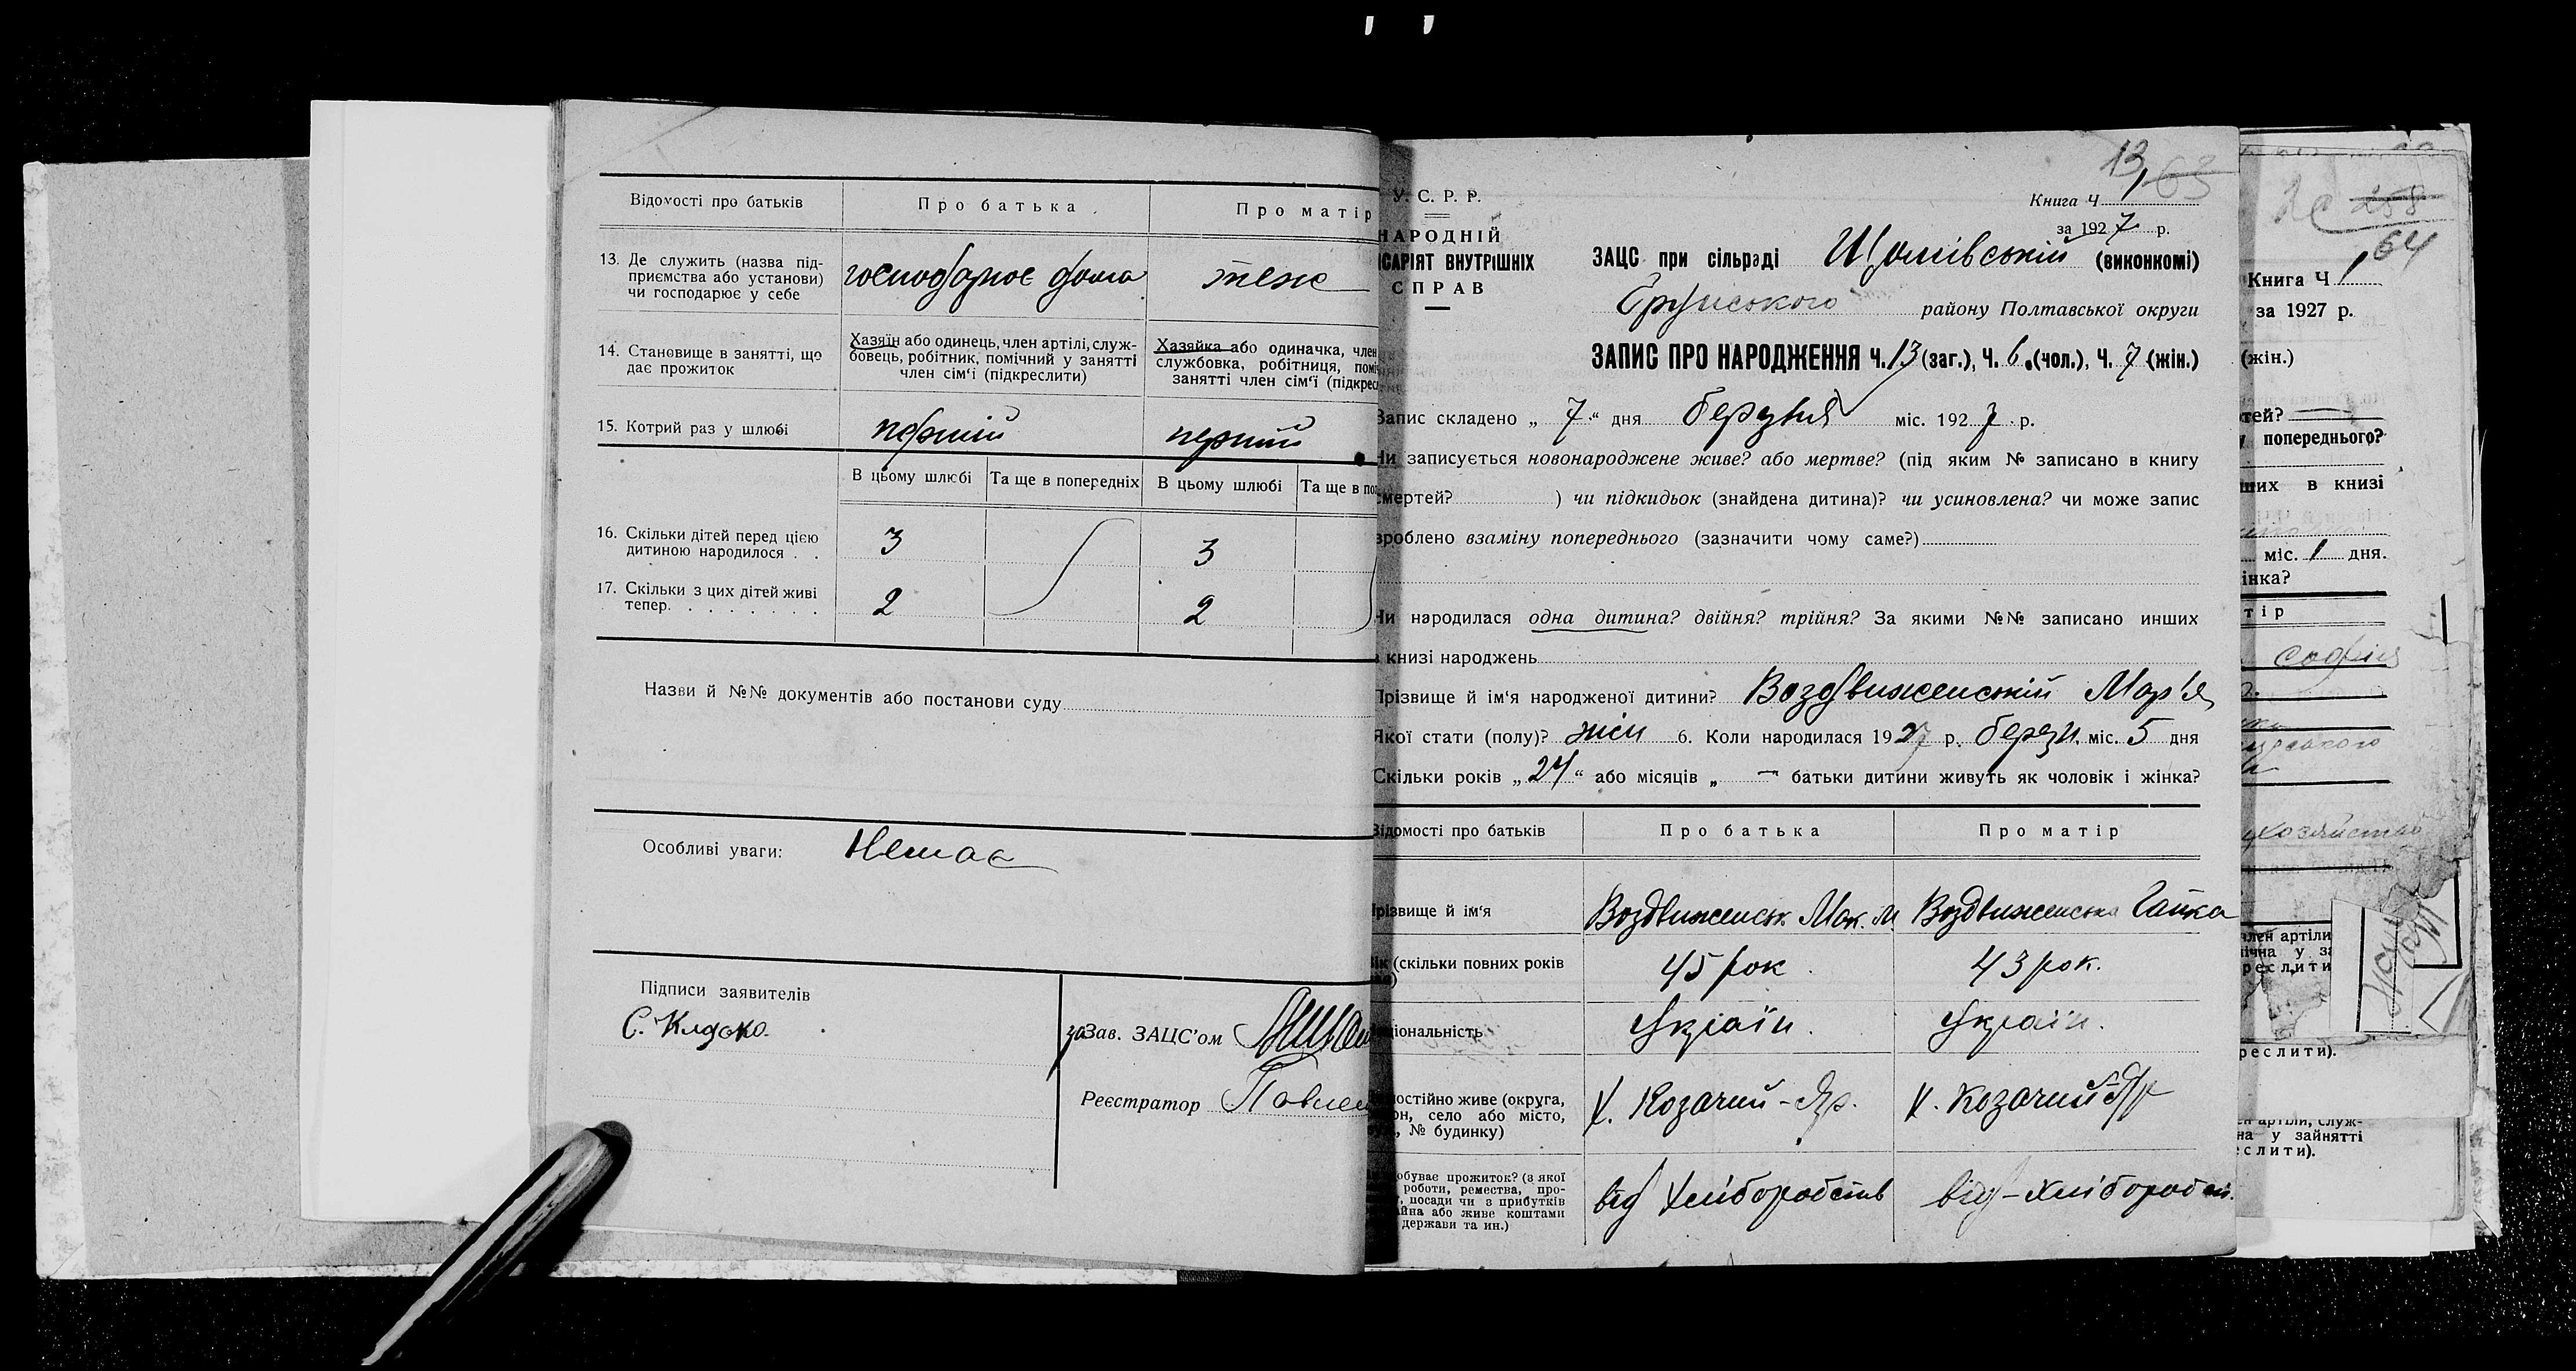 Відомості про батьків
Про батька
Про матір
13. Де служить (назва під-
приємства або установи)
чи господарює у себе
господарює дома
теж
14. Становище в занятті, що
дає прожиток
Хазяїн або одинець, член артілі, служ-
бовець, робітник, помічний у занятті
член сім'ї (підкреслити)
Хазяйка або одиначка, член
службовка, робітниця, помі
занятті член сім'ї (підкрес
15. Котрий раз у шлюбі
перший
перший
В цьому шлюбі
Та ще в попередніх
В цьому шлюбі
Та ще в по
16. Скільки дітей перед цією
дитиною народилося . .
3
3
17. Скільки з цих дітей живі
тепер. . . . . . . .
2
2
Назви й №№ документів або постанови суду
Особливі уваги: Немає
Підписи заявителів
С.
за Зав. ЗАЦС'ом
Реєстратор
13
63
У. С. Р. Р.
НАРОДНІЙ
САРІЯТ ВНУТРІШНІХ
СПРАВ
Книга Ч 1
за 1927 р.
ЗАЦС при сільраді (виконкомі)
району Полтавської округи
ЗАПИС ПРО НАРОДЖЕННЯ Ч. 13 (заг.), Ч. 6 (чол.), Ч. 7 (жін.)
Запис складено „ 7 “ дня березня міс. 1927 р.
Чи записується новонароджене живе? або мертве? (під яким № записано в книгу
смертей? ) чи підкидьок (знайдена дитина)? чи усиновлена? чи може запис
зроблено взаміну попереднього (зазначити чому саме?)
Чи народилася одна дитина? двійня? трійня? За якими №№ записано инших
в книзі народжень
Прізвище й ім'я народженої дитини? Воздвиженській Мар'я
Якої стати (полу)? жін 6. Коли народилася 1927 р. березн. міс. 5 дня
Скільки років „ 24 “ або місяців „ — батьки дитини живуть як чоловік і жінка?
Відомості про батьків
Про батька
Про матір
Прізвище й ім'я
Воздвиженськ Мак. М
Воздвиженська Гапка
(скільки повних років
45 рок.
43 рок.
ціональність
Україн.
Україн.
постійно живе (округа,
он, село або місто,
, № будинку)
х. Козачий-Яр.
х. Козачий-Яр
обуває прожиток? (з якої
роботи, ремества, про-
, посади чи з прибутків
йна або живе коштами
держави та ин.)
від хліборобств
від-хліборобст.
258
64
Книга Ч 1
за 1927 р.
(жін.)
тей?
попереднього?
ших в книзі
міс. 1 дня.
інка?
тір
Софія
хозяйство
член артіли
ічна у за
реслити
реслити).
ен артіли, служ-
на у зайнятті
еслити).